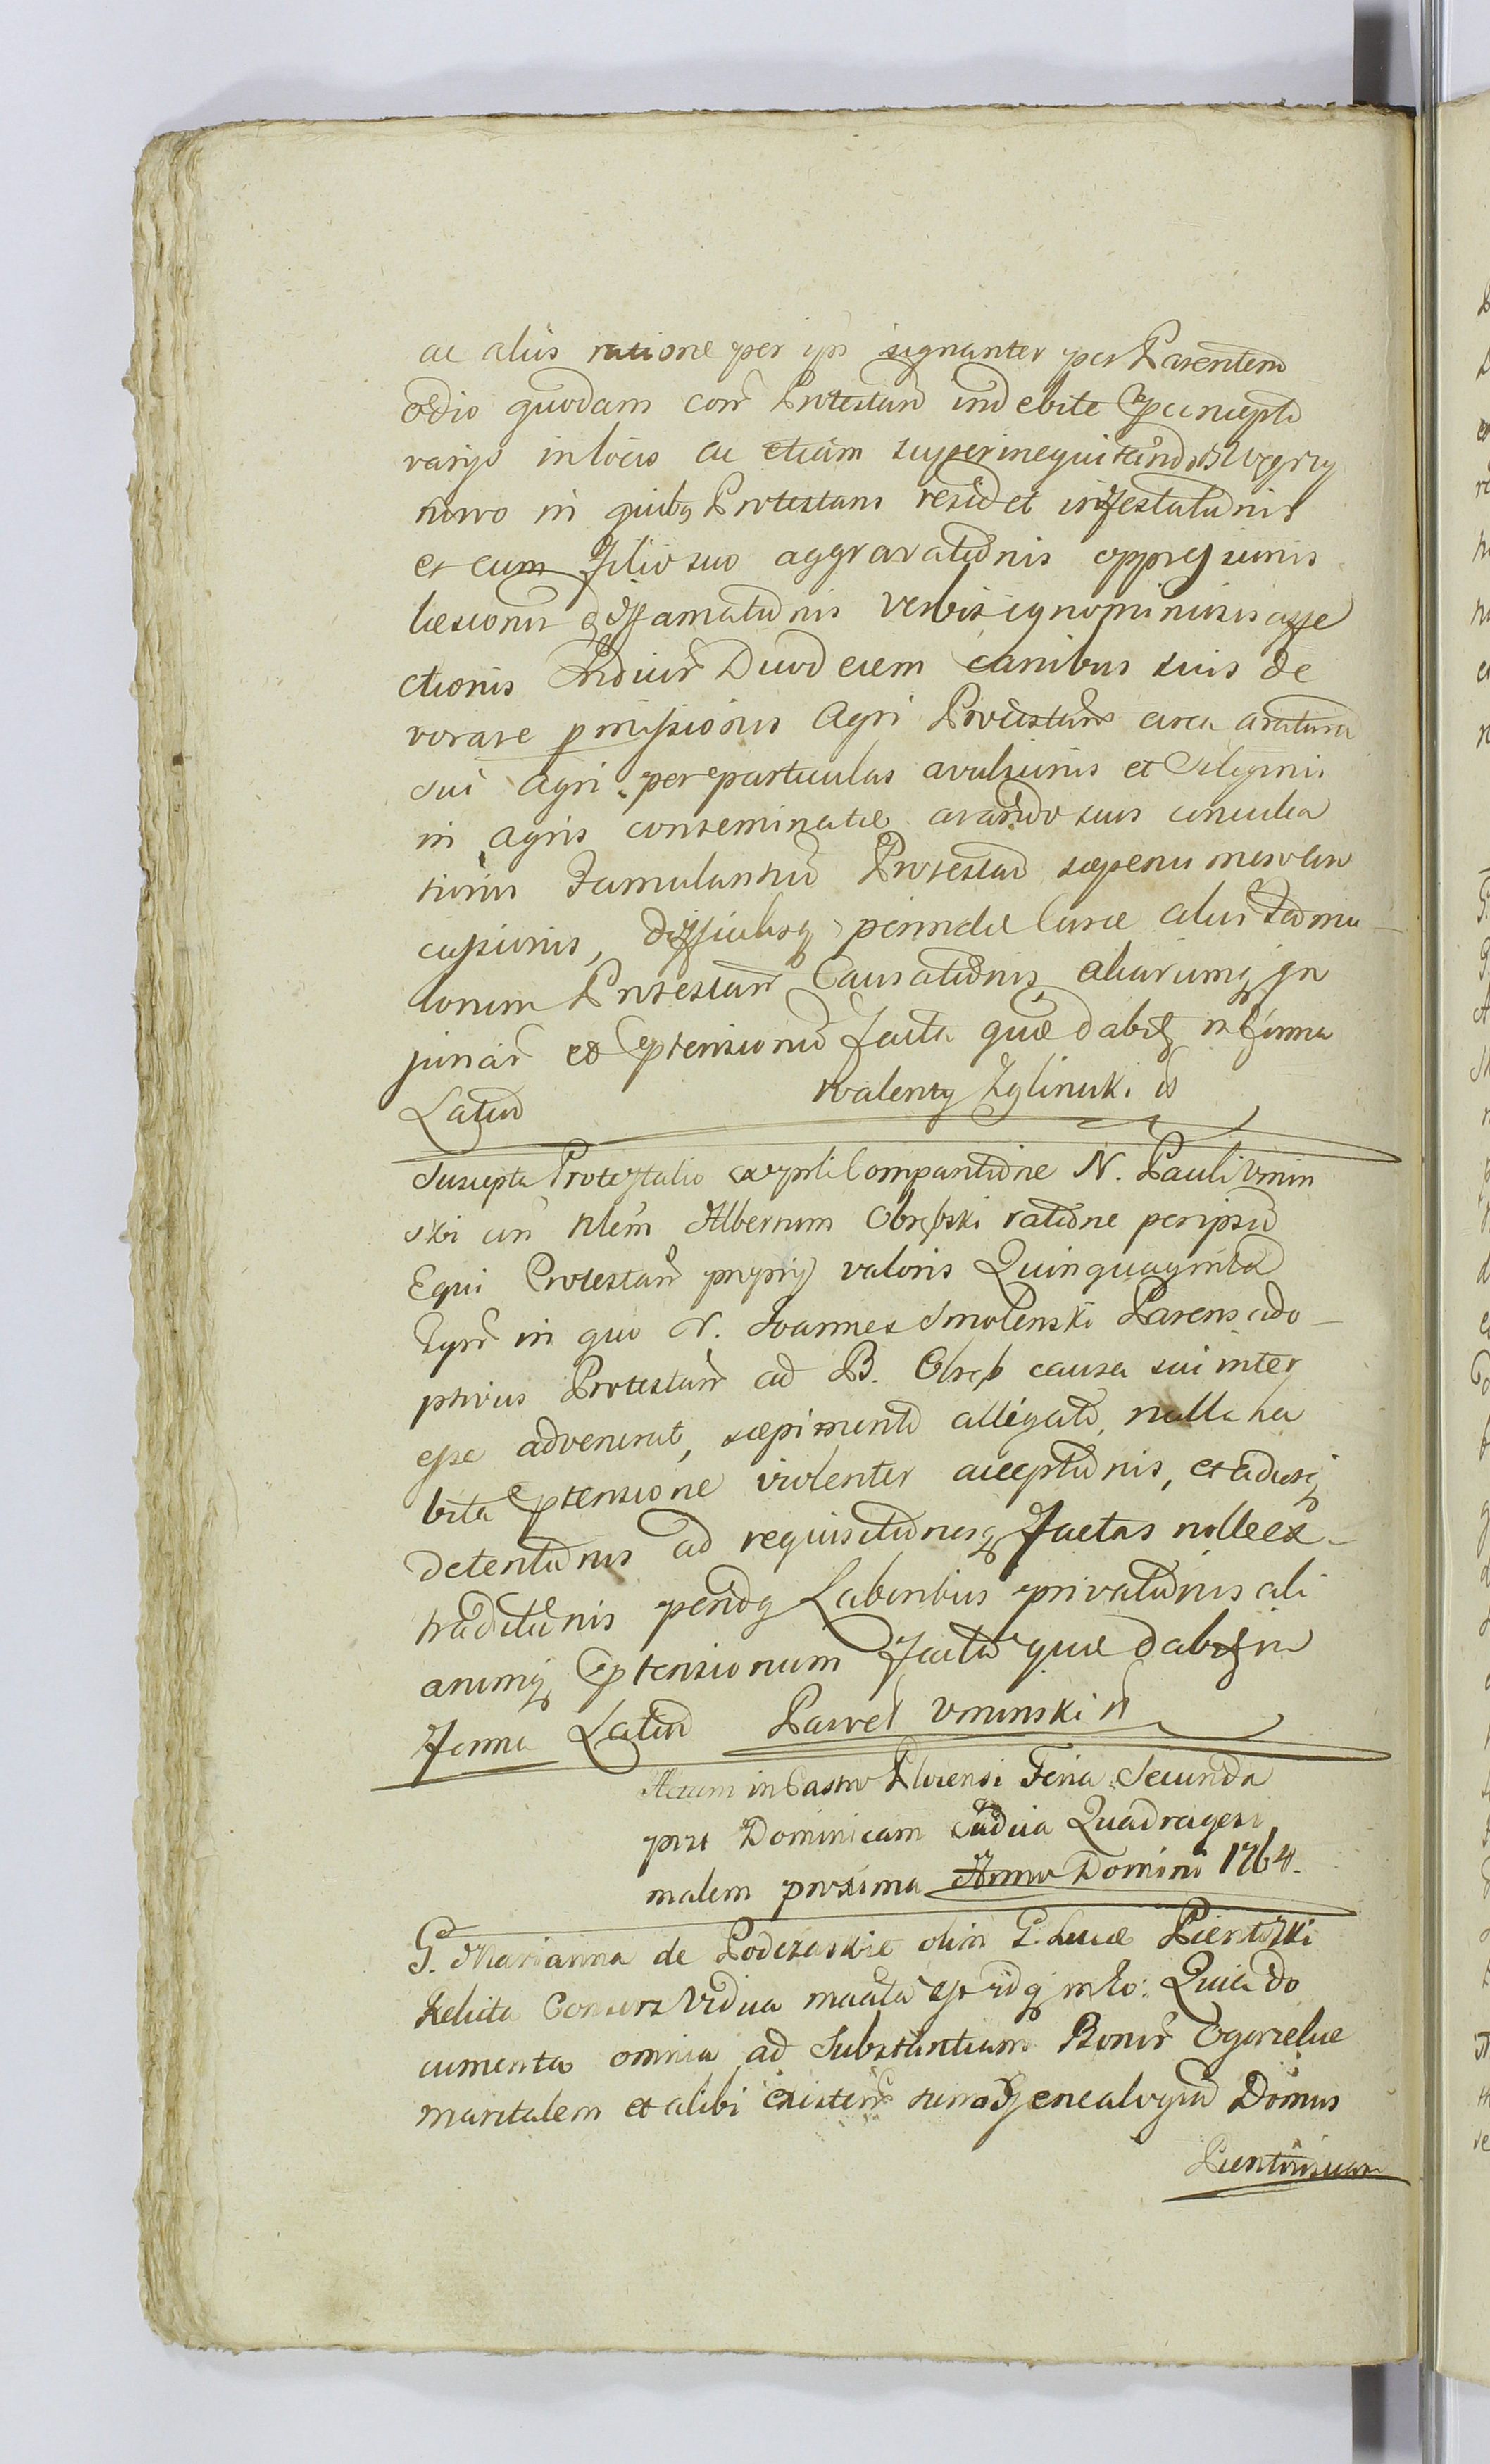 ac aliis ratione per ips signanter per Parentem
odio quodam con Protestan indebite concepto
varijs in locis ac etiam superinequitando B Węgrzy
nowo in quibq Protestans residet infestationis
et cum Filio suo aggravationis oppressionis
læsionis diffamationis verbis ignominiosis affe
ctionis Duodecem canibus suis de
vorare promissionis Agri Protestans circa araturam
sui Agri per particulas avulsionis et Siliginis
in agris conseminatæ arando suis conculca
tionis Famulantium Protestan sæpenumero
cussionis, perinde aliis Famu
lorum Protestan Causationis aliarumq In
juriar et prtensionu facta quæ dabit in forma
Latiori Walenty Zglinicki
Suscepta Protestatio ex Comparitione N. Pauli Umin
ski con Nlem Albertum Obrębski ratione per ipsu
Equi Protestan proprij valoris Quinquaginta
Tynf in quo N. Joannes Smolenski Parens ado
ptivus Protestan ad B. Obręb causa sui inter
esse advenerat, sæpimento alligati, nulla ha
bita prtensione violenter acceptionis, et aduseq
detentionis ad requisitionesq factas nolle ex
traditionis perindq Laboribus privationis ali
arumq prtensionum facta quæ dabit in
Forma Latiori Paweł Uminski
Actum in Castro Plocensi Feria Secunda
post Dominicam Quadragesi
malem proxima Anno Domini 1764.
G. Marianna de Podczaskie olim G. Lucæ Pientkzki
Relicta Consors Vidua in eo: Quia do
cumenta omnia ad Substantiam Bonor Ogorzelice
maritalem et alibi existen Genealogiam Domus